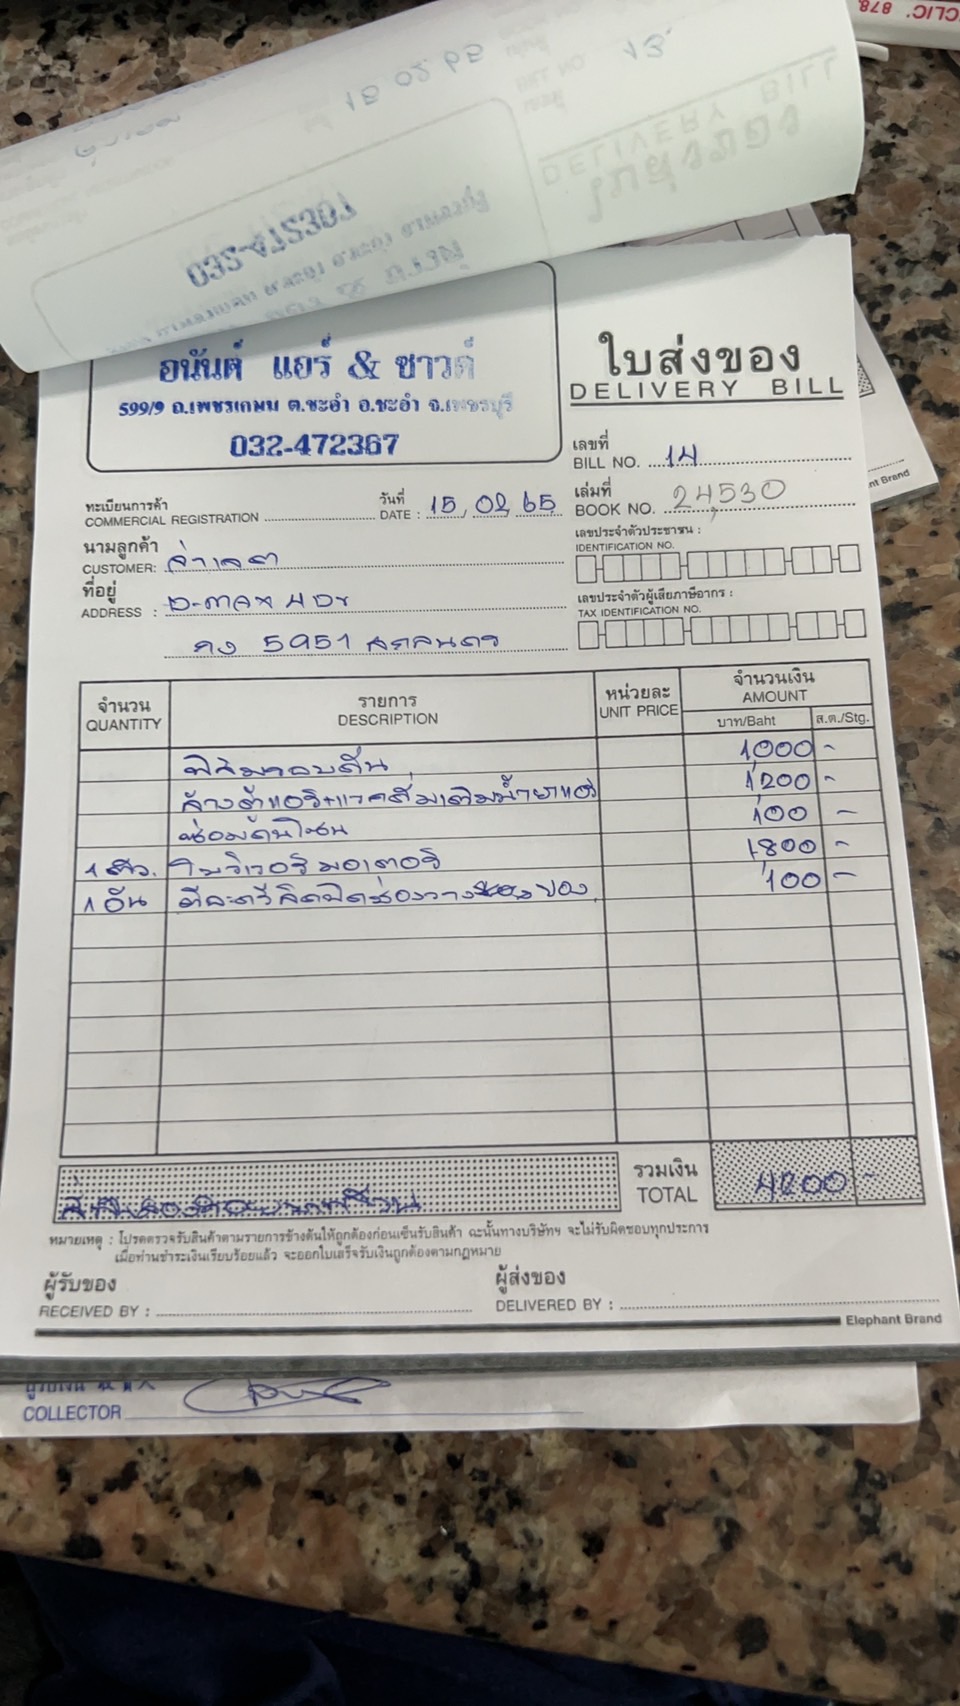 CLIC. 878
15 02 65
DELIVERY BILL
อนันต์ แอร์ & ซาวด์
599/9 ถ.เพชรเกษม ต.ชะอำ อ.ชะอำ จ.เพชรบุรี
032-472367
ใบส่งของ
DELIVERY BILL
nt Brand
เลขที่
BILL NO. 14
ทะเบียนการค้า
COMMERCIAL REGISTRATION
วันที่
DATE : 15, 02, 65
เล่มที่
BOOK NO. 24530
นามลูกค้า
CUSTOMER: จ่าเลต
เลขประจำตัวประชาชน :
IDENTIFICATION NO.
ที่อยู่
ADDRESS : D-max 4Dr
เลขประจำตัวผู้เสียภาษีอากร :
TAX IDENTIFICATION NO.
5951 สกลนคร
จำนวน
QUANTITY
รายการ
DESCRIPTION
หน่วยละ
UNIT PRICE
จำนวนเงิน
AMOUNT
บาท/Baht
ส.ต./Stg.
ฟิล์มรอบคัน 1,000 -
ล้างตู้แอร์+แวคคั่มเติมน้ำยาแอร์ 1,200 -
ซ่อม 100 -
1 ตัว. มอเตอร์ 1,800 -
1 อัน 100 -
รวมเงิน
TOTAL 4200 -
หมายเหตุ : โปรดตรวจรับสินค้าตามรายการข้างต้นให้ถูกต้องก่อนเซ็นรับสินค้า ฉะนั้นทางบริษัทฯ จะไม่รับผิดชอบทุกประการ
เมื่อท่านชำระเงินเรียบร้อยแล้ว จะออกใบเสร็จรับเงินถูกต้องตามกฎหมาย
ผู้รับของ
RECEIVED BY :
ผู้ส่งของ
DELIVERED BY :
Elephant Brand
COLLECTOR